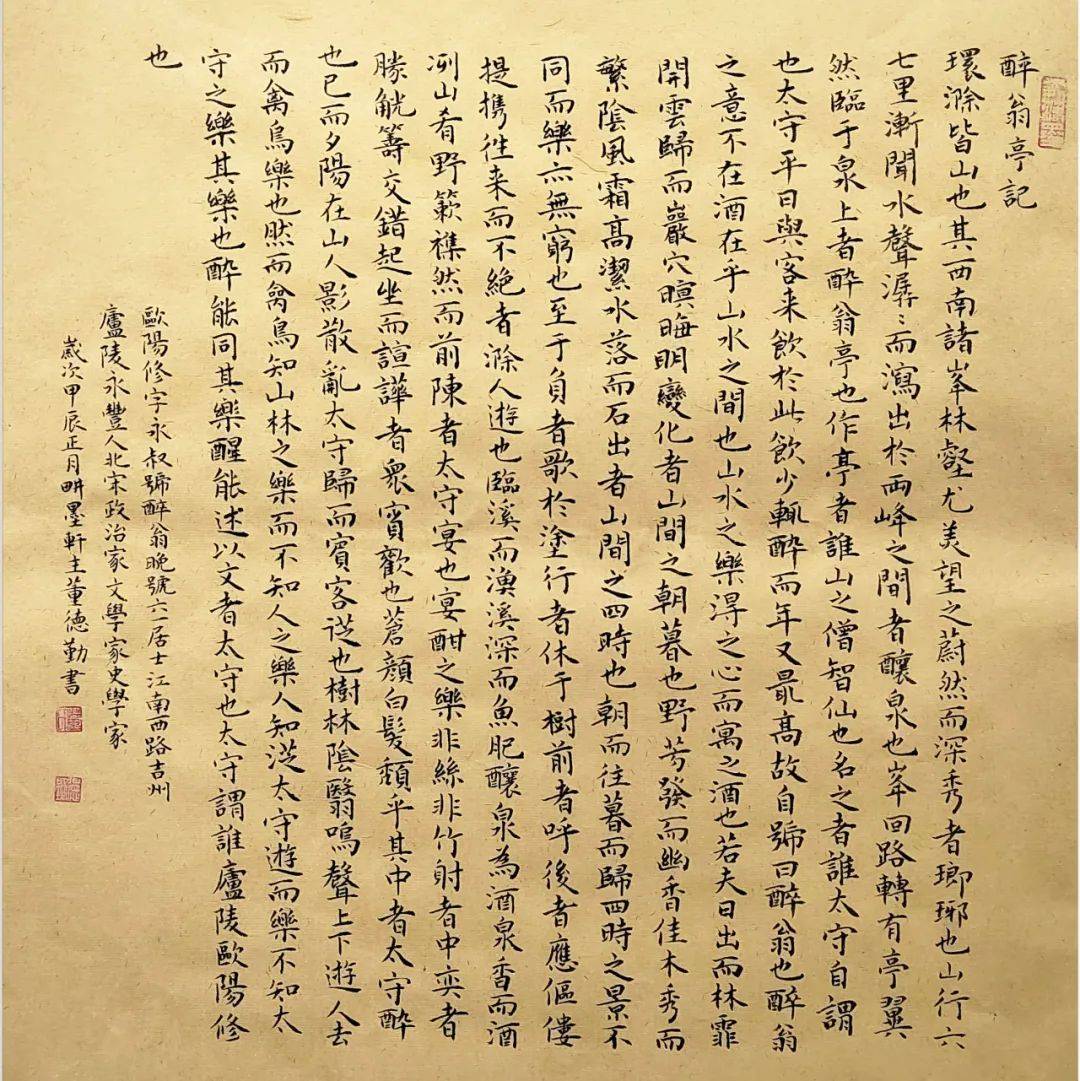 醉翁亭記
環滁皆山也其西南諸峯林壑尤美望之蔚然而深秀者瑯琊也山行六
七里漸聞水聲潺〻而瀉出於兩峰之間者釀泉也峯回路轉有亭翼
然臨于泉上者醉翁亭也作亭者誰山之僧智仙也名之者誰太守自謂
也太守平日與客来飲於此飲少輒醉而年又最高故自號曰醉翁也醉翁
之意不在酒在乎山水之間也山水之樂得之心而寓之酒也若夫日出而林霏
開雲歸而巖穴暝晦明變化者山間之朝暮也野芳發而幽香佳木秀而
繁陰風霜高潔水落而石出者山間之四時也朝而往暮而歸四時之景不
同而樂亦無窮也至于負者歌於塗行者休于樹前者呼後者應傴僂
提攜往来而不絕者滁人遊也臨溪而漁溪深而魚肥釀泉為酒泉香而酒
洌山肴野蔌襍然而前陳者太守宴也宴酣之樂非絲非竹射者中奕者
勝觥籌交錯起坐而諠譁者衆賓歡也蒼顏白髮頹乎其中者太守醉
也已而夕陽在山人影散亂太守歸而賓客從也樹林陰翳鳴聲上下遊人去
而禽鳥樂也然而禽鳥知山林之樂而不知人之樂人知從太守遊而樂不知太
守之樂其樂也醉能同其樂醒能述以文者太守也太守謂誰廬陵歐陽修
也
歐陽修字永叔號醉翁晚號六一居士江南西路吉州
廬陵永豐人北宋政治家文學家史學家
歲次甲辰正月畊墨軒主董德勤書